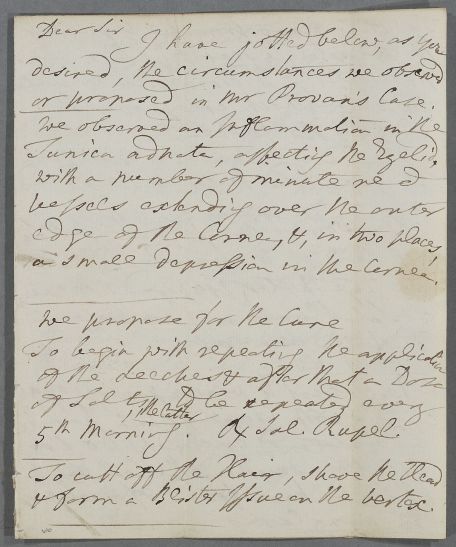 Dear Sir
I have jotted below, as you
desired, the circumstances we observed
or proposed in Mr Provan's Case.
We observed an Inflammation in the
Tunica adnata, affecting the Eyelids,
with a number of minute red
vessels extending over the outer
edge of the Cornea, &, in two places,
a small depression in the Cornea.
We propose for the Cure
To begin with repeating the application
of the Leeches & after that a Dose
of Salts, to be repeated every
, the latter
5th Morning. Sal. Rupel.
To cutt off the Hair, shave the Head
& form a Blister Issue on the vertex.